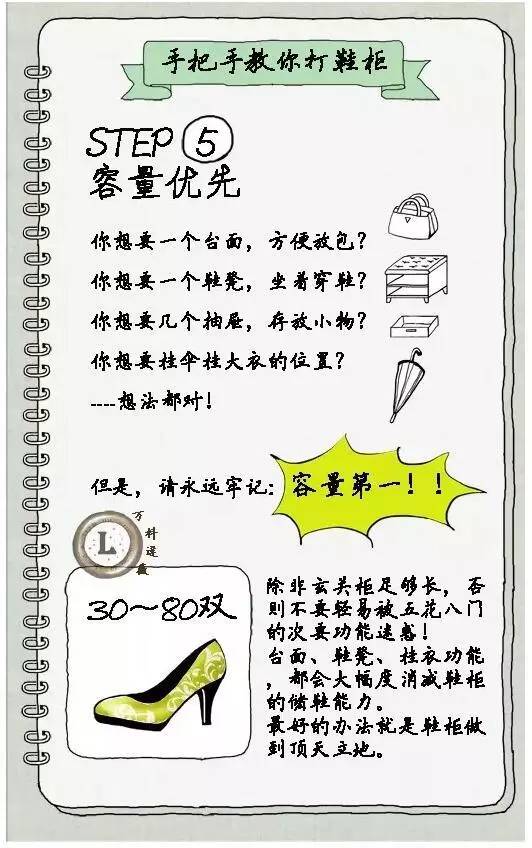 手把手教你打鞋柜
STEP ⑤
容量优先
你想要一个台面，方便放包？
你想要一个鞋凳，坐着穿鞋？
你想要几个抽屉，存放小物？
你想要挂伞挂大衣的位置？
----想法都对！
但是，请永远牢记：容量第一！！
L
30～80双
除非玄关柜足够长，否
则不要轻易被五花八门
的次要功能迷惑！
台面、鞋凳、挂衣功能
，都会大幅度消减鞋柜
的储鞋能力。
最好的办法就是鞋柜做
到顶天立地。